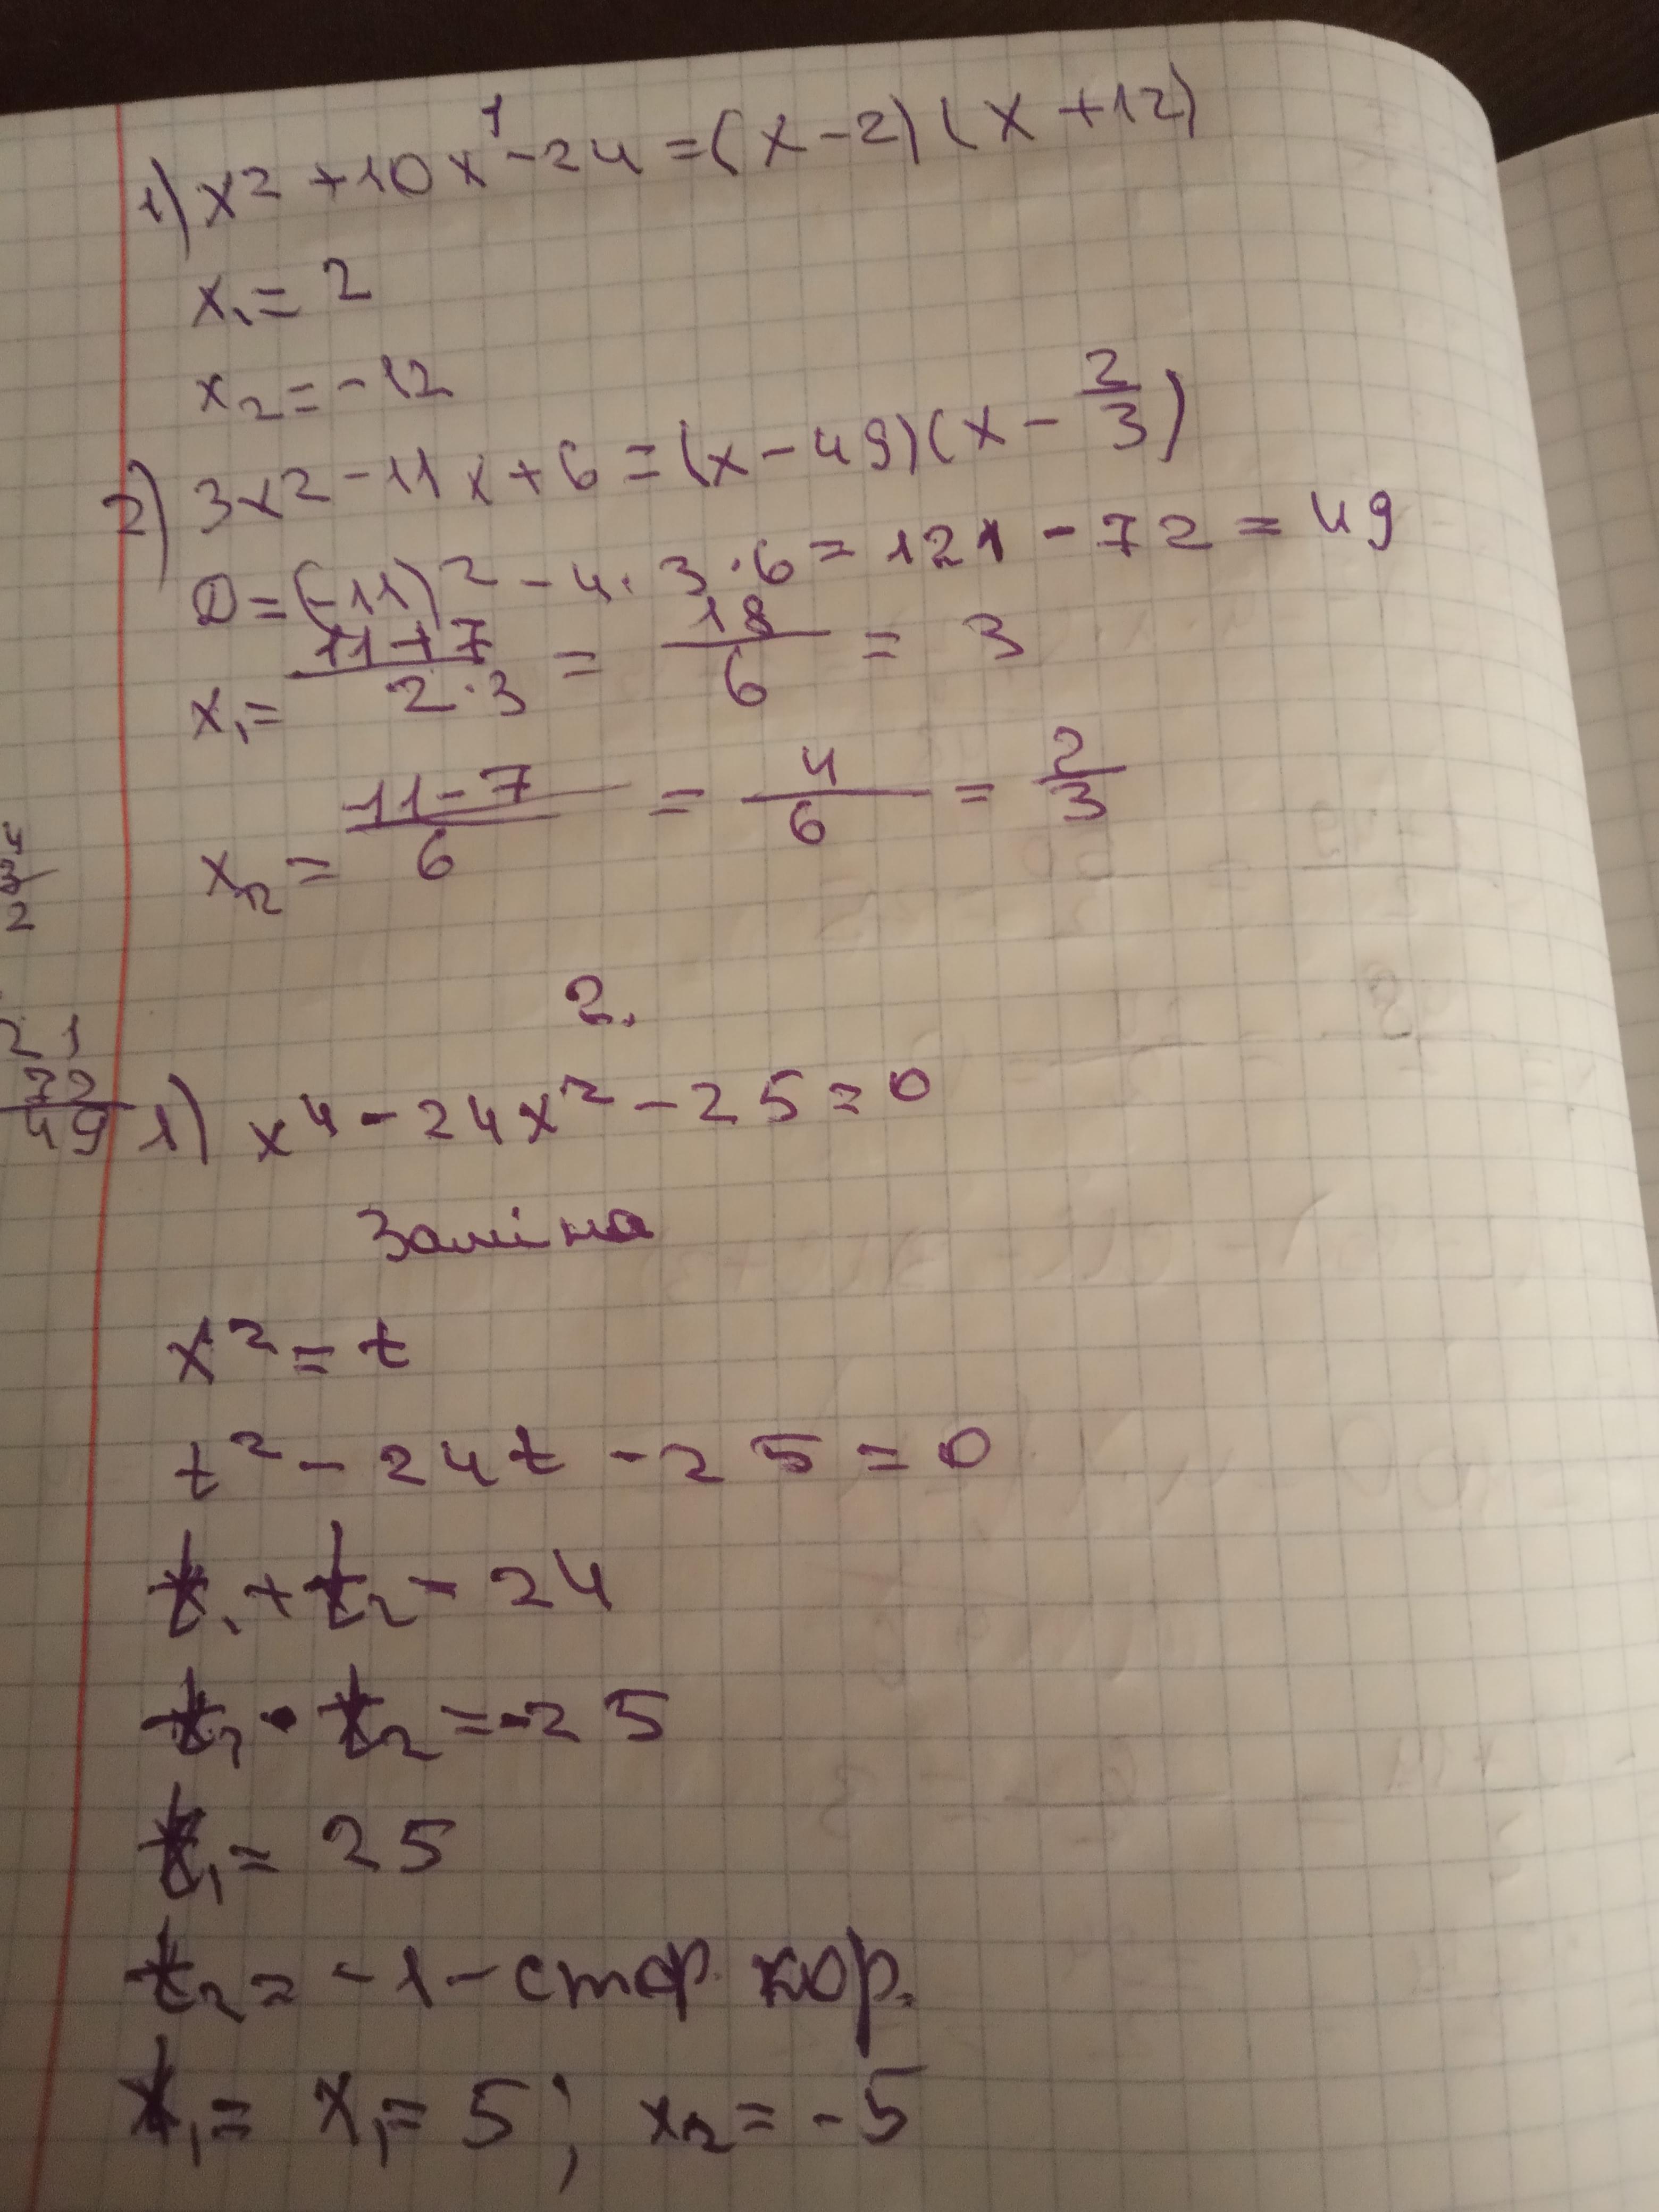 1) x² + 10x¹ - 24 = (x - 2)(x + 12)
x₁ = 2
x₂ = -12
2) 3x² - 11x + 6 = (x - 49)(x - 2/3)
D = (-11)² - 4 · 3 · 6 = 121 - 72 = 49
x₁ = 11+7 / 2·3 = 18/6 = 3
x₂ = 11-7 / 6 = 4/6 = 2/3
2.
21
72
49
1) x⁴ - 24x² - 25 = 0
Заміна
x² = t
t² - 24t - 25 = 0
t₁ + t₂ - 24
t₁ · t₂ = -25
t₁ = 25
t₂ = -1 - стор. кор.
x₁ = x₁ = 5; x₂ = -5